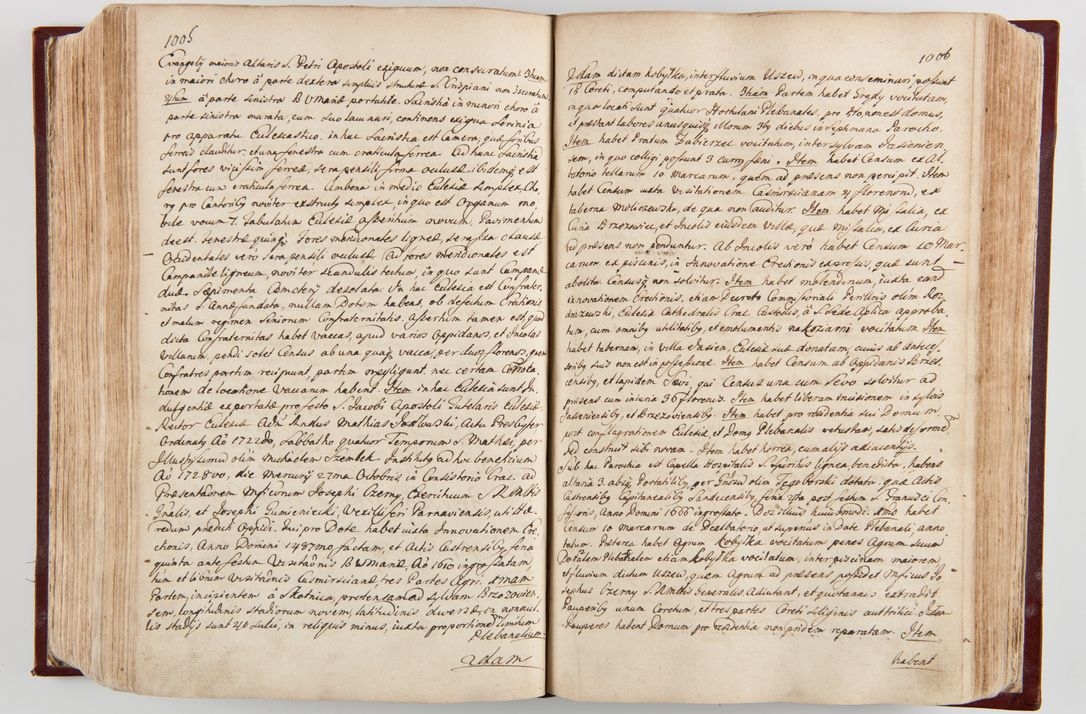 1005
Evangelij maioris Altaris S. Petri Apostoli exiguum, non consecratum 3tium
in maiori choro â parte dextera simplicis structurae S. non
â parte sinistra B V Mariae portatile. Sacristia in minori choro â
parte sinistra murata, cum suo lavinari, continens exigua scrinia
pro apparatu Ecclesiastico. in hac Sacristia est Camera, quae foribus
ferreis clauditur, et una fenestra cum craticula ferrea. Ad hanc Sacristia
sunt fores vicissim ferreae, sera pensili firma occlusae: ibidemq est
fenestra cum craticula ferrea. Ambona in medio Ecclesiae simplex, Cho
rq pro Cantoribq noviter extructq simplex, in quo est Organum mo
bile vocum 7. Tabulatum Ecclesiae asseritium novum, Pavimentum
deest. fenestrae quinq. Fores meridionales ligneae, sera fixa clausae
Occidentales verò sera pensili occlusae. Ad fores meridionales est
Campanile ligneum, noviter scandulis tectum, in quo sunt Campanae
duae. Sepimenta Cœmeterij desolata. In hac Ecclesia est Confrater,
nitas S. Annae fundata, nullam Dotem habens, ob defectum Erectionis
et malum regimen Seniorum Confraternitatis. Assertum tamen est, quod
dicta Confraternitas habet vaccas, apud varios Oppidanos, et Incolas
villarum, pendi solet Census ab una quaq vacca, per duos florenos, quem
Confratres partim recipiunt, partim negligunt, nec certam
tionem de locatione vaccarum habent. Item in hac Ecclesia sunt In,
dulgentiae expertatae pro festo S. Jacobi Apostoli Tutelaris Ecclesiae
Rector Ecclesiae Adm Rndus Mathias, Actu Presbyter
Ordinatq Ao 1722do, Sabbatho quatuor Temporum S. Mathaei, per
Illustrissimum olim Michaelem Szembek. Institutq ad hoc beneficium
Ao 1728vo, die Mercurij 27ma Octobris, in Consistorio Crac. ad
Praesentationem Mficorum Josephi Czerny, Exercituum S R Mttis
Gnalis, et Josephi Gumienicki, Vexilliferi Parnaviensis, uti Hae,
redum praedicti Oppidi. Qui pro Dote habet iuxta Innovationem Ere,
ctionis, Anno Domini 1487mo factam, et Actis Castrensibq feria
quinta ante festum Visitaõnis B V Mariae, Ao 1610 ingrossatam
tum et librum Visitaõnis Casimirsianae, tres Partes Agri. 1mam
Partem, incipientem â Skotnica, protensam ad sylvam Brzozowien,
sem, longitudinis stadiorum novem, latitudinis diversae, in nonnul
lis stadijs sunt 20 sulci, in reliquis minus, iuxta proportionem limitum
Plebanalium
2dam
1006
2dam dictam Kobyłka, inter fluvium Uszew, in qua conseminari possunt
15 Coreti, computando et prata. 3tiam Partem habet Grądy vocitatam,
in qua locati sunt quatuor Hortulani Plebanales, pro Ho, non est domus,
et praestant labores unusquisq illorum 3bq diebus in Septimana Parocho.
Item habet Pratum Zabierzew vocitatum, inter sylvam Jasienien
sem, in quo colligi possunt 3 currq faeni. Item habet Censum ex Al,
botorio tellarum 10 marcarum, quem ad praesens non percipit. Item
habet Censum iuxta visitationem Casimirsianam 4 florenorum, ex
taberna Moliszewsko, de qua non auditur. Item habet Missalia, ex
Curia Brzezowiec, et Incolis eiusdem villae, quae Missalia, ex Curia
ad praesens non penduntur. Ab Incolis verò habet Censum 10 Mar,
carum ex piscinis, in Innovatione Erectionis expressus, quae sunt
abolitae Censusq non solvitur. Item habet molendinum, iuxta eand
renovationem Erectionis, etiam Decreto Commissoriali Perillris olim Roz,
drazewski, Ecclesiae Cathedralis Crac. Custodis, â S. Sede Aplica approba,
tum, cum omnibq utilitatibq, et emolumentis na koziarni vocitatum. Item
habet tabernam, in villa Jasien, Ecclesiae suae donatam, cuius ab anteces,
soribq suis non est in possessione. Item habet Censum ab Oppidanis Brzes,
censibq, et lapidem Sevi, qui Census una cum Sevo solvitur ad
praesens cum iniuria 36 florenis. Item habet liberam incisionem in sylvis
Jasieniensibq, et Brzezoviensibq. Item habet pro residentia sui Domum
post conflagrationem Ecclesiae, et Domq Plebanalis vetustam, satis deformem
sed construit sibi novam. Item habet horrea, cum alijs adiacentijs.
Sub hac Parochia est Capella Hospitalis S. Spiritus lignea, benedicta, habens
altaria 3. absq Portatilibq, per Gnosum olim Tęgoborski dotata, quae Actis
Castrensibq Capitanealibq Sandecensibq, feria 2da post festum S. Francisci Con,
fessoris, Anno Domini 1668 ingrossata. Dos illius huiusmodi. 1mo habet
Censum 10 marcarum de Dealbatorio, ut superius in Dote Plebanali anno,
tatum. Praeterea habet Agrum Kobyłka vocitatum penes Agrum suum
Dotalem Plebanalem etiam Kobyłka vocitatum, inter piscinam maiorem
et fluvium dictum Uszew, quem Agrum ad praesens possidet Mficus Jo,
sephus Czerny S R Mttis Generalis Adiutant, et quotannis extradit
Pauperibq unum Coretum, et tres partes Coreti siliginis aut tritici. Ijdem
Pauperes habent Domum pro residentia non pridem reparatam. Item
habent